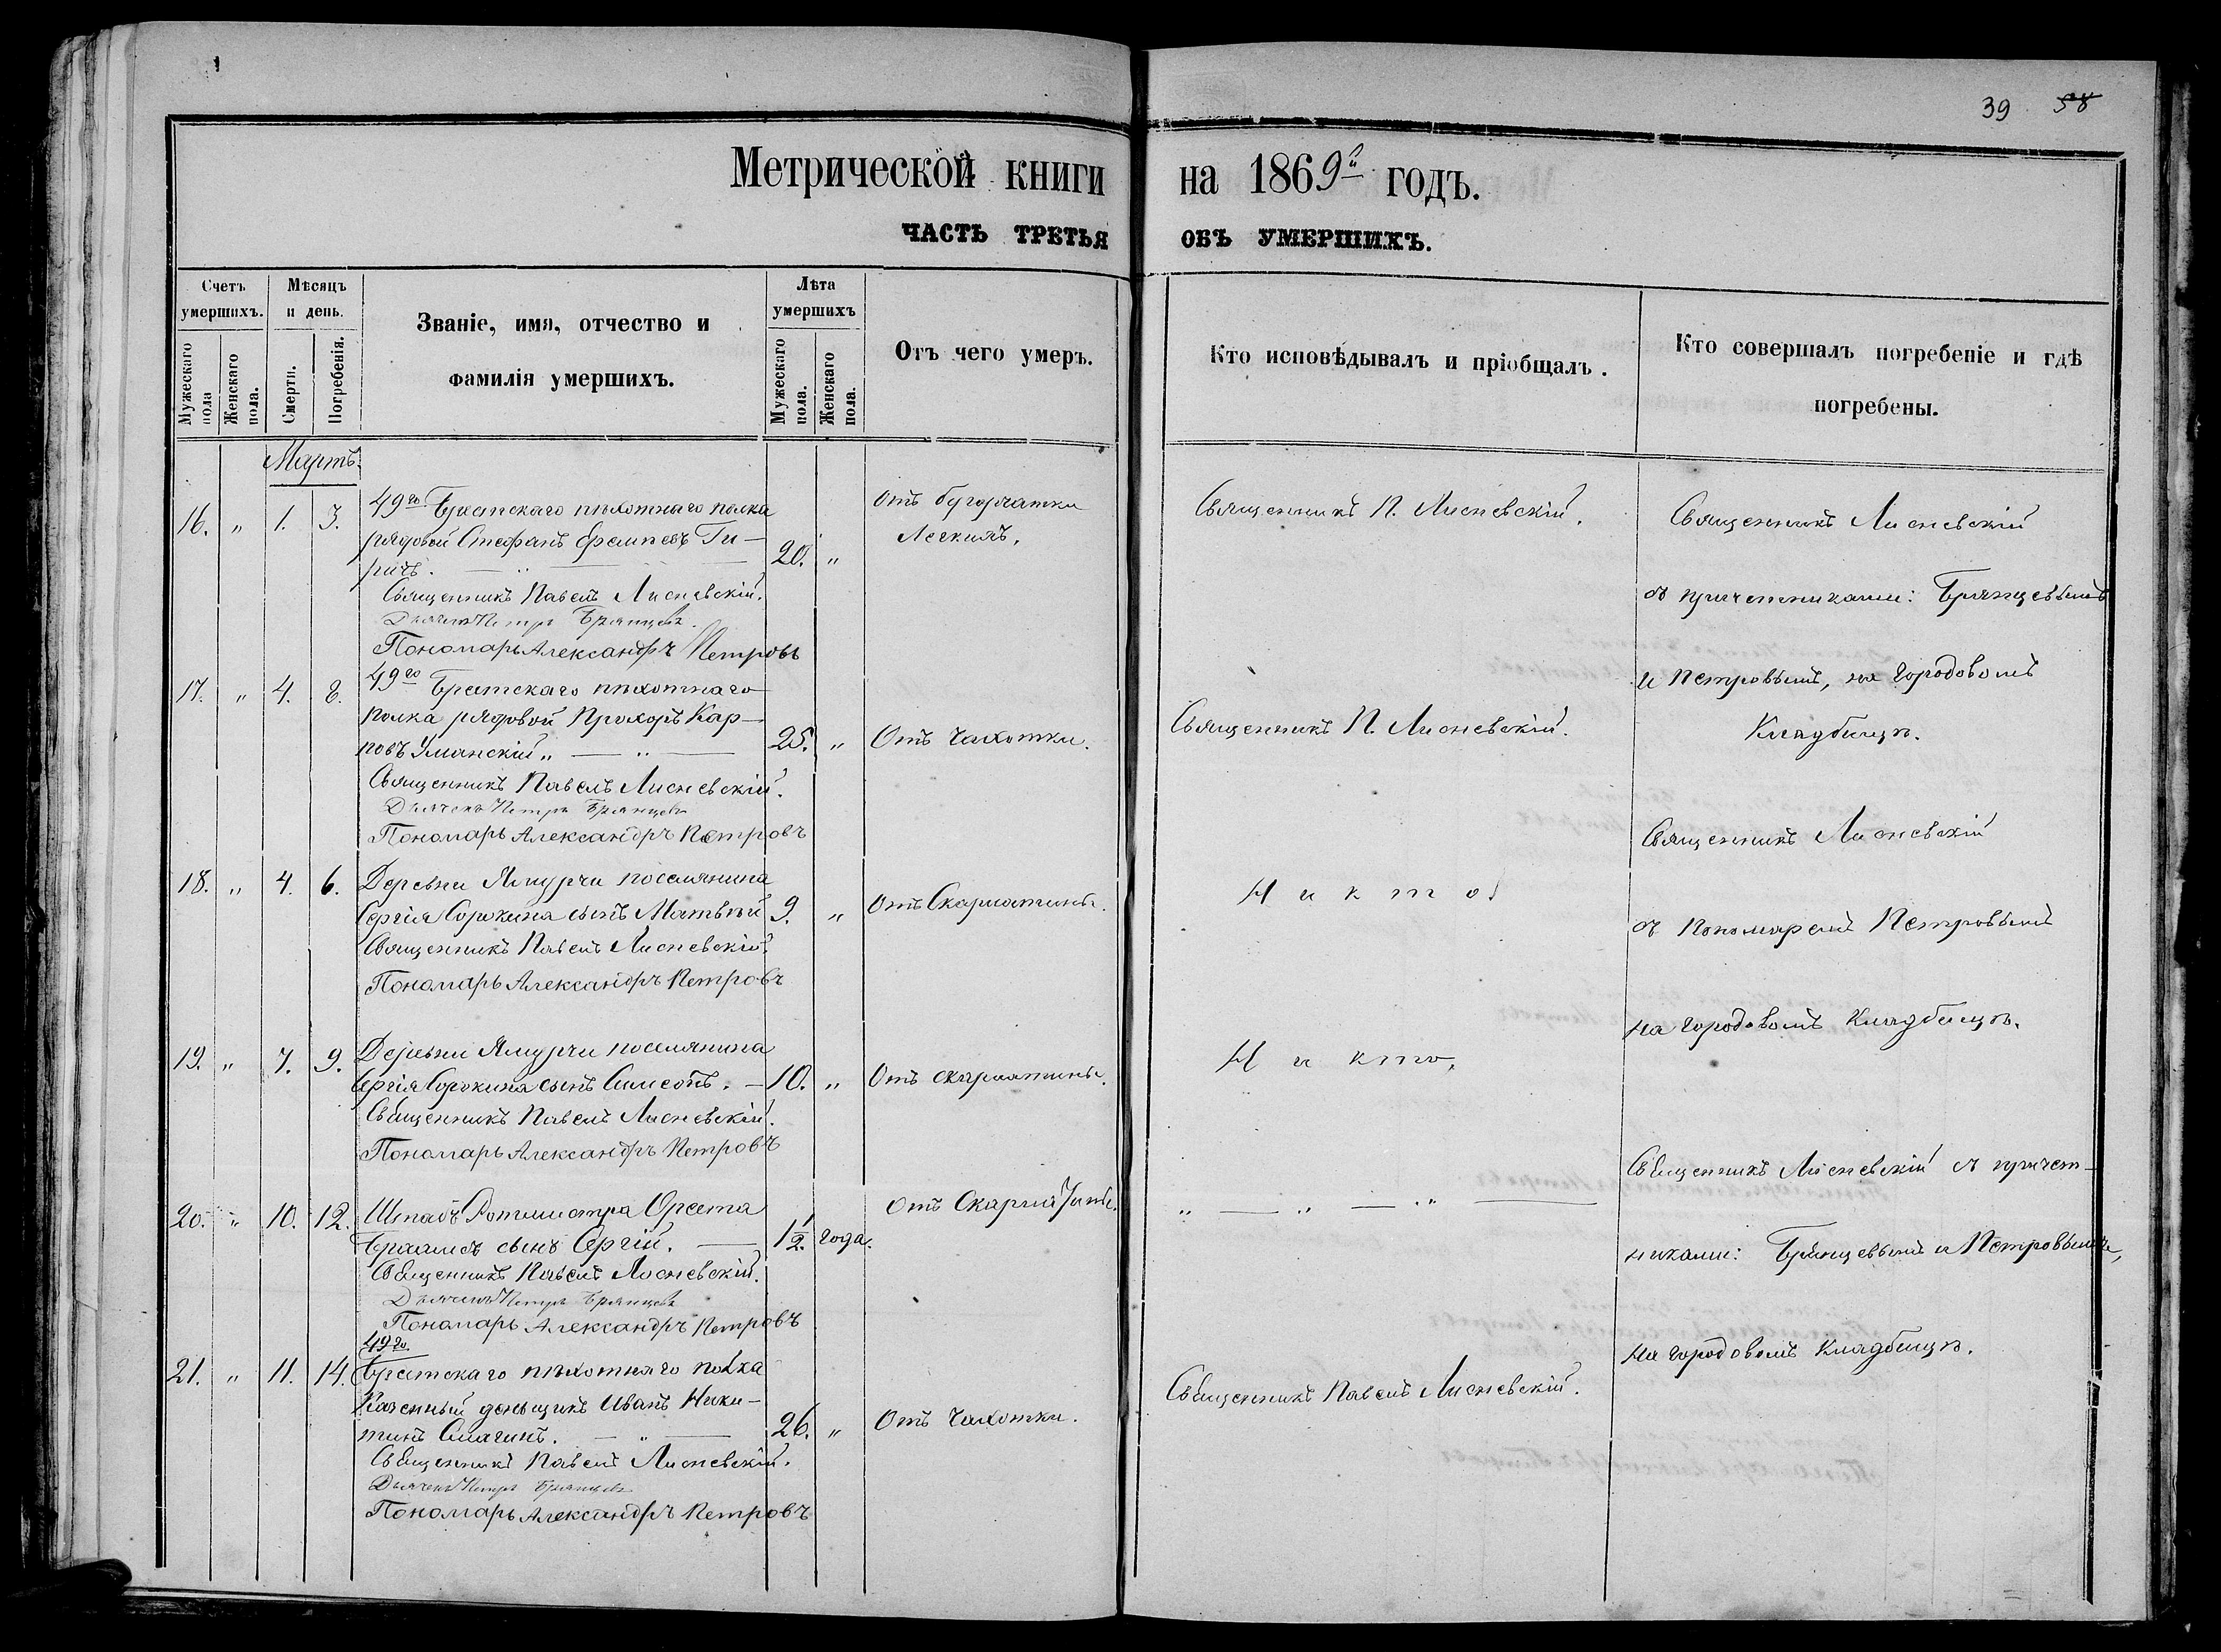 39 58
Метрической книги на 1869й годъ.
ЧАСТЬ ТРЕТЬЯ ОБЪ УМЕРШИХЪ.
Счетъ умершихъ.
Мужескаго пола
Женскаго пола.
Мѣсяцъ и день.
Смерти.
Погребенія.
Званіе, имя, отчество и
фамилія умершихъ.
Лѣта умершихъ
Мужескаго пола.
Женскаго пола.
Отъ чего умеръ.
Кто исповѣдывалъ и пріобщалъ.
Кто совершалъ погребеніе и гдѣ
погребены.
Мартъ.
16. „ 1. 3. 49го Брестскаго пѣхотнаго полка
рядовой Стефанъ
20. „
Отъ бугорчатки
Легкихъ.
Священникъ П. Лисневскій.
Священникъ Лисневскій
съ причетниками: Брянцевымъ
и Петровымъ, на городовомъ
Кладбищѣ.
Священникъ Павелъ Лисневскій.
Дьячекъ Петръ Брянцевъ.
Пономарь Александръ Петровъ
17. „ 4. 8. 49го Брестскаго пѣхотнаго
полка рядовой Прохоръ Кар-
повъ Уманскій „ — „ —
25. „ Отъ Чахотки.
Священникъ П. Лисневскій.
Священникъ Павелъ Лисневскій.
Дьячекъ Петръ Брянцевъ
Пономарь Александръ Петровъ
18. „ 4. 6. Деревни Ямурчи поселянина
Сергія Сорокина сынъ Матвѣй 9. „ Отъ Скарлатины.
Никто.
Священникъ Лисневскій
съ Пономаремъ Петровымъ
на городовомъ Кладбищѣ.
Священникъ Павелъ Лисневскій.
Пономарь Александръ Петровъ
19. „ 7. 9. Деревни Ямурчи поселянина
Сергія Сорокина сынъ Симеонъ. — 10. „ Отъ скарлатины.
Никто.
Священникъ Павелъ Лисневскій.
Пономарь Александръ Петровъ
20. „ 10. 12. Штабъ Ротмистра Ореста
сынъ Сергій. — 1/2. года.
Отъ Скарлатины.
„ — „ — „ —
Священникъ Лисневскій съ причет-
никами: Брянцевымъ и Петровымъ,
на городовомъ Кладбищѣ.
Священникъ Павелъ Лисневскій.
Дьячекъ Петръ Брянцевъ
Пономарь Александръ Петровъ
49го
21. „ 11. 14. Брестскаго пѣхотнаго полка
Казенный деньщикъ Иванъ Ники-
тинъ — „ —
26. „ Отъ Чахотки.
Священникъ Павелъ Лисневскій.
Священникъ Павелъ Лисневскій.
Дьячекъ Петръ Брянцевъ
Пономарь Александръ Петровъ